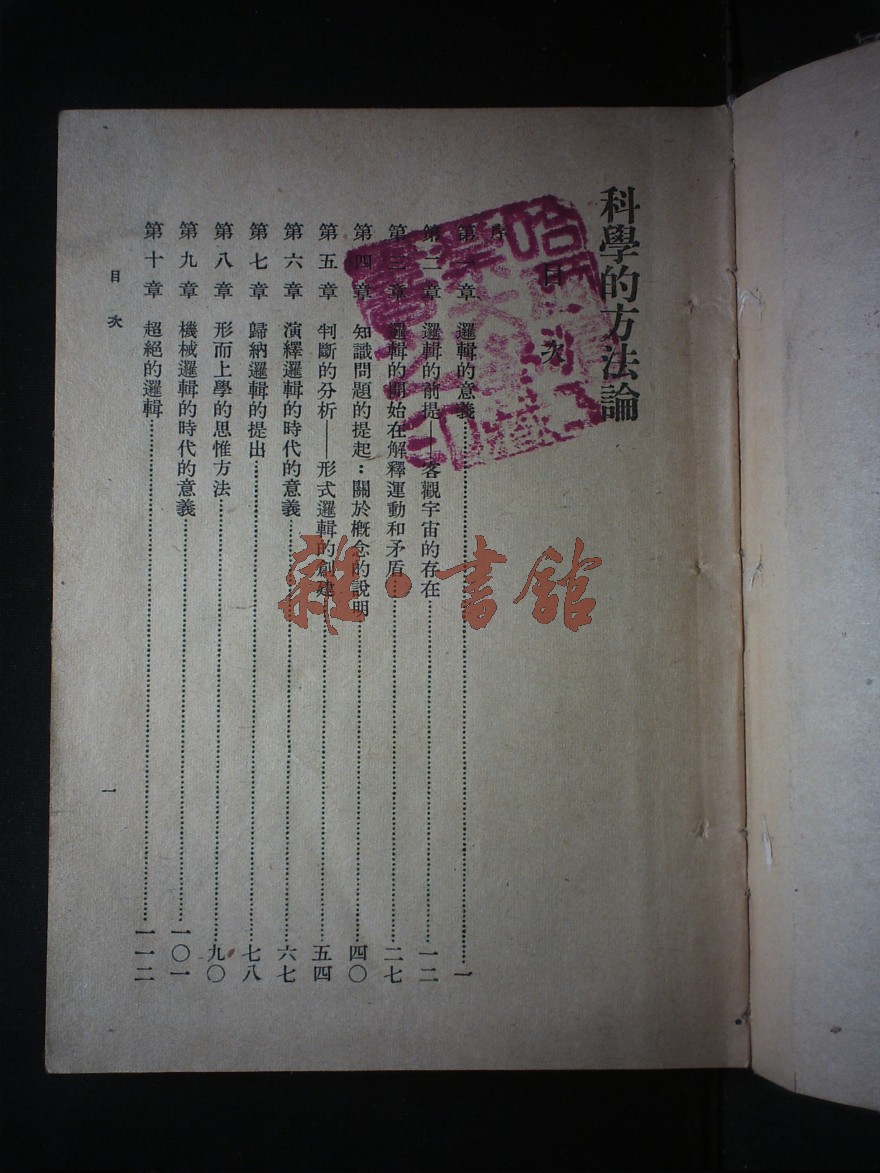 科學的方法論
目次
序
第一章 邏輯的意義……一
第二章 邏輯的前提——客觀宇宙的存在……一二
第三章 邏輯的開始在解釋運動和矛盾……二七
第四章 知識問題的提起：關於概念的說明……四〇
第五章 判斷的分析——形式邏輯的創建……五四
第六章 演繹邏輯的時代的意義……六七
第七章 歸納邏輯的提出……七八
第八章 形而上學的思惟方法……九〇
第九章 機械邏輯的時代的意義……一〇一
第十章 超絕的邏輯……一一二
目次
一
雜·書館